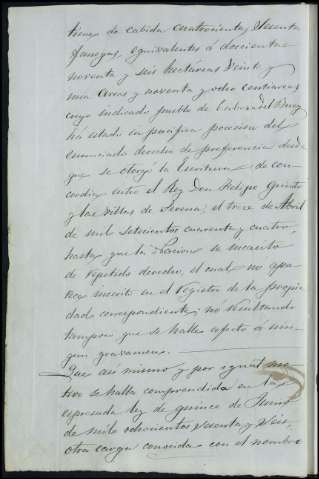 tienen de cabida cuatrocientas sesenta
fanegas, equivalentes á doscientas
noventa y seis hectáreas veinte y
una areas y noventa y ocho centiareas
cuyo indicado pueblo de Cabeza del Buey
ha estado en pacifica posesion del
enunciado derecho de preferencia desde
que se otorgó la Escritura de con-
cordia entre el Rey Don Felipe Quinto
y las villas de Serena, el trece de Abril
de mil setecientos cuarenta y cuatro,
hasta que la Nacion se incautó
de repetido derecho, el cual no apa-
rece inscrito en el registro de la propie-
dad correspondiente, no resultando
tampoco que se halle afecto á nin-
gun gravamen.
Que asi mismo y por igual mo-
tivo se halla comprendida en la
espresada ley de quince de Junio
de mil ochocientos sesenta y seis
otra carga conocida con el nombre